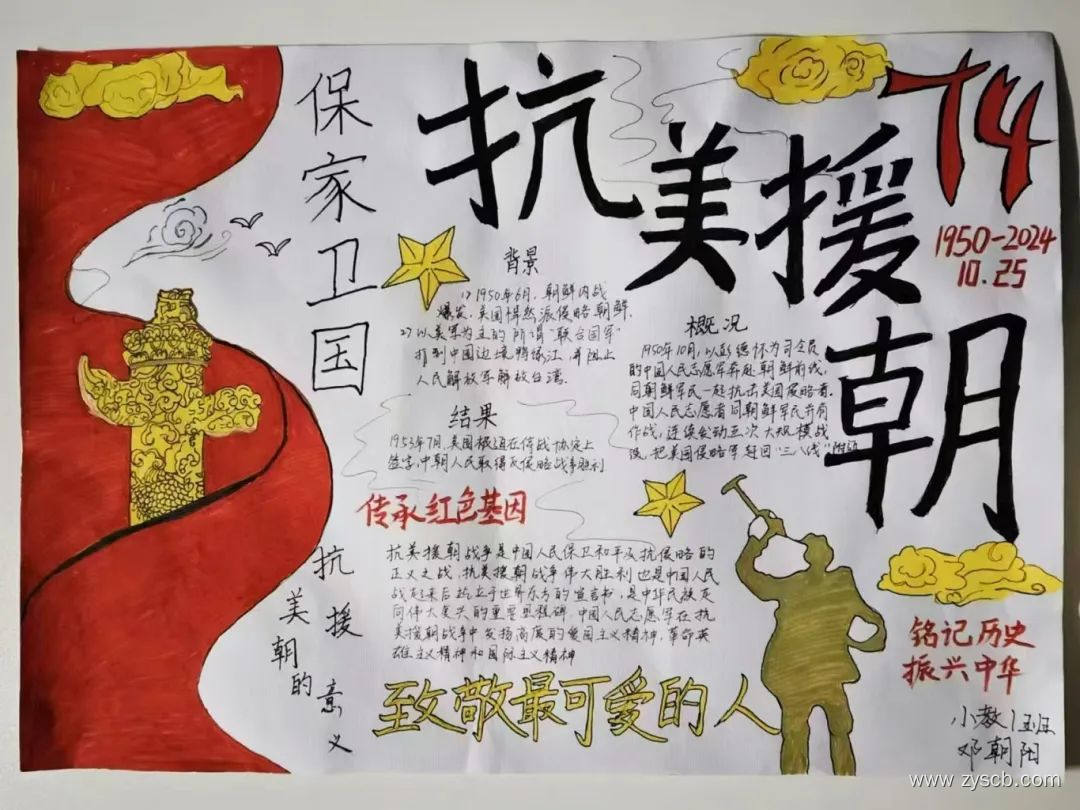 保家卫国
抗美援朝
74
1950-2024
10.25
背景
1> 1950年6月，朝鲜内战
爆发，美国悍然派侵略朝鲜.
2> 以美军为主的所谓“联合国军”
打到中国边境鸭绿江，并阻止
人民解放军解放台湾.
概况
1950年10月，以彭德怀为司令员
的中国人民志愿军奔赴朝鲜前线，
同朝鲜军民一起抗击美国侵略者.
中国人民志愿者同朝鲜军民并肩
作战，连续发动五次大规模战
役，把美国侵略军赶回“三八线”附近
结果
1953年7月，美国被迫在停战协定上
签字，中朝人民取得反侵略战争胜利
传承红色基因
抗美援朝的意义
抗美援朝战争是中国人民保卫和平反抗侵略的
正义之战，抗美援朝战争伟大胜利也是中国人民
战起来后屹立于世界东方的宣言书，是中华民族走
向伟大复兴的重要里程碑，中国人民志愿军在抗
美援朝战争中发扬高度的爱国主义精神，革命英
雄主义精神和国际主义精神
致敬最可爱的人
铭记历史
振兴中华
小教1班
邓朝阳
www.zyscb.com